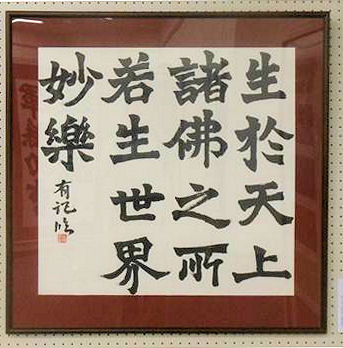 生於天上
諸佛之所
若生世界
妙樂
有記临